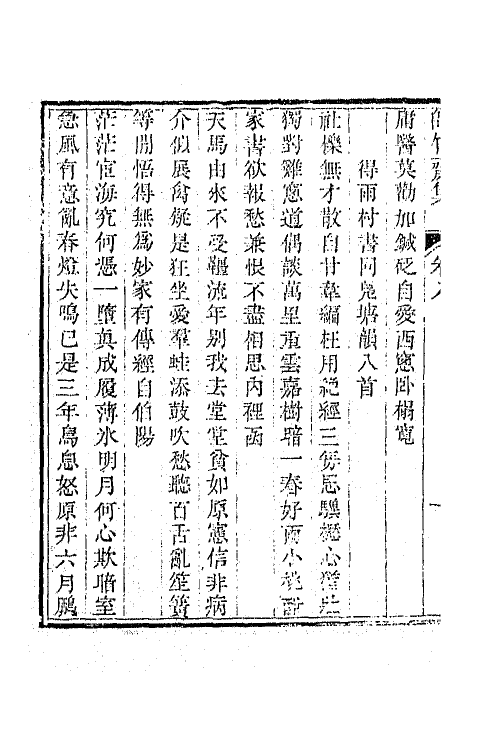 庸醫莫勸加鍼砭自愛西窻臥榻寬
得雨村書同鳧塘韻八首
社櫟無才散自甘韋編枉用絕經三努思驥櫪心猶壯
獨對雞窻道偶談萬里重雲嘉樹暗一春好雨小桃酣
家書欲報愁兼恨不盡相思內裡函
天馬由來不受韁流年別我去堂堂貧如原憲信非病
介似展禽疑是狂坐愛羣蛙添鼓吹愁聽百舌亂笙簧
等閒悟得無爲妙家有傳經自伯陽
茫茫宦海究何憑一墮眞成履薄氷明月何心欺暗室
急風有意亂春燈失鳴已是三年鳥息怒原非六月鵬